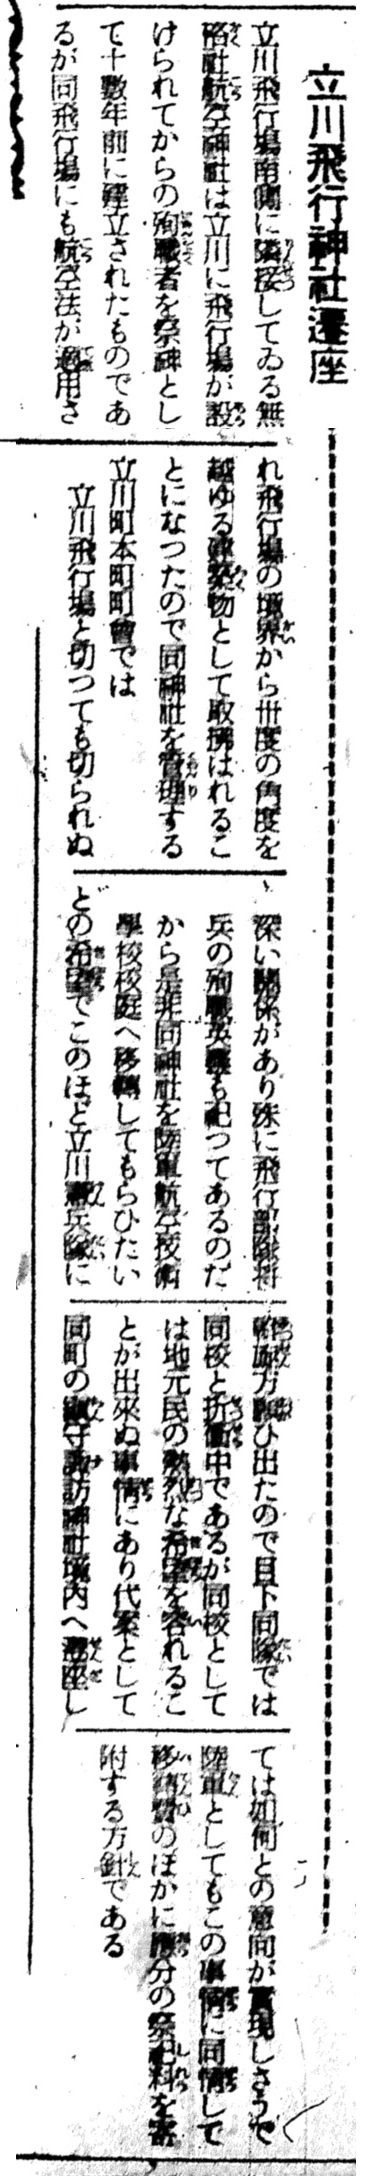 立川飛行神社遷座
立川飛行場南側に隣接してゐる無
格社航空神社は立川に飛行場が設
けられてからの殉職者を祭神とし
て十數年前に建立されたものであ
るが同飛行場にも航空法が適用さ
れ飛行場の境界から卅度の角度を
越ゆる建築物として取拂はれるこ
とになつたので同神社を管理する
立川町本町町會では
立川飛行場と切つても切られぬ
深い關係があり殊に飛行部隊將
兵の殉職英靈も祀つてあるのだ
から是非同神社を陸軍航空技術
學校校庭へ移轉してもらひたい
との希望でこのほど立川憲兵隊に
斡旋方願ひ出たので目下同隊では
同校と折衝中であるが同校として
は地元民の熱烈な希望を容れるこ
とが出來ぬ事情にあり代案として
同町の鎭守諏訪神社境内へ遷座し
ては如何との意向が實現しさうで
陸軍としてもこの事情に同情して
移轉費のほかに應分の祭祀料を寄
附する方針である